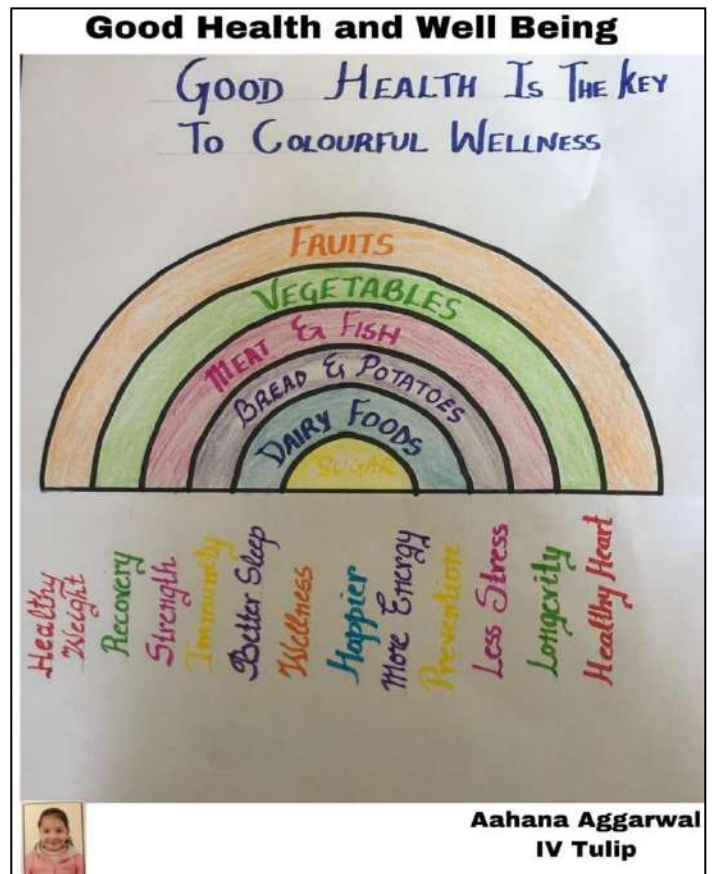 Good Health and Well Being
GOOD HEALTH IS THE KEY
TO COLOURFUL WELLNESS
FRUITS
VEGETABLES
MEAT & FISH
BREAD & POTATOES
DAIRY FOODS
SUGAR
Healthy
Weight
Recovery
Strength
Immunity
Better Sleep
Wellness
Happier
More Energy
Prevention
Less Stress
Longevity
Healthy Heart
Aahana Aggarwal
IV Tulip